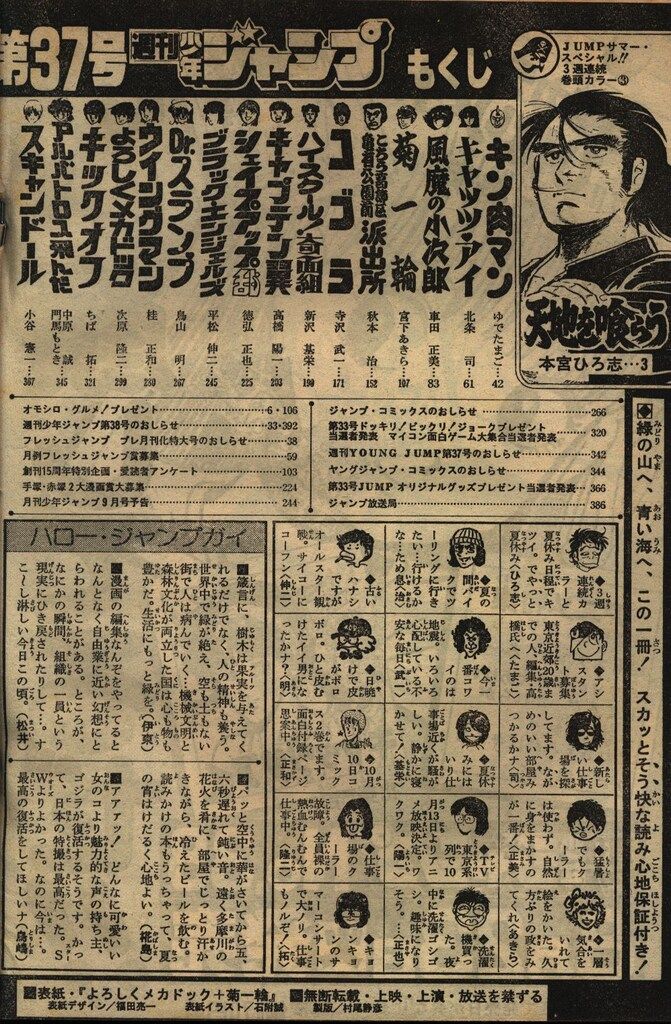 第37号 週刊少年ジャンプ もくじ
JUMPサマー・
スペシャル!!
3週連続
巻頭カラー③
天地を喰らう
本宮ひろ志…3
キン肉マン ゆでたまご…42
キャッツ・アイ 北条 司…61
風魔の小次郎 車田 正美…83
菊一輪 宮下あきら…107
こちら葛飾区亀有公園前派出所 秋本 治…152
コブラ 寺沢 武一…171
ハイスクール!奇面組 新沢 基栄…190
キャプテン翼 高橋 陽一…203
シェイプアップ乱 徳弘 正也…225
ブラック・エンジェルズ 平松 伸二…245
Dr.スランプ 鳥山 明…267
ウイングマン 桂 正和…280
よろしくメカドック 次原 隆二…299
キックオフ ちば 拓…321
アルバトロス飛んだ 中原 誠 門馬もとき…345
スキャンドール 小谷 憲一…367
オモシロ・グルメ!プレゼント…6・106
週刊少年ジャンプ第38号のおしらせ…33・392
フレッシュジャンプ プレ月刊化特大号のおしらせ…38
月例フレッシュジャンプ賞募集…59
創刊15周年特別企画・愛読者アンケート…103
手塚・赤塚2大漫画賞大募集…224
月刊少年ジャンプ9月号予告…244
ジャンプ・コミックスのおしらせ…266
第33号ドッキリ!ビックリ!ジョークプレゼント
当選者発表 マイコン面白ゲーム大集合当選者発表…320
週刊YOUNG JUMP第37号のおしらせ…342
ヤングジャンプ・コミックスのおしらせ…344
第33号JUMPオリジナルグッズプレゼント当選者発表…366
ジャンプ放送局…386
◆緑の山へ、青い海へ、この一冊!スカッとそう快な読み心地保証付き!
◆3週連続カラーと夏休み日程でキツイ。でもやっと夏休み〈ひろ志〉
◆アシスタント募集。東京近郊20歳までの人。編集・高橋氏へ〈たまご〉
◆新しい仕事場を探してます。なんかいい部屋みつかるかナ〈司〉
◆猛暑でもクーラーは使わず。自然に身をまかすのが一番!〈正美〉
◆一層気合をいれて絵をかいた。久方ぶりの政をみてくれ〈あきら〉
◆夏の間バイクでツーリングに行きたい…行けるかな…ため息〈治〉
◆今一番コワイのは地震。いろいろ心配している不安な毎日〈武一〉
◆夏休みにはいり仕事場近辺が騒がしい。静かに寝かせて!〈基栄〉
◆TV東京系列で10月13日よりアニメ放映決定。ワクワク。〈陽一〉
◆洗濯機買った。夜中に洗濯ゴシゴシ。趣味になりそう。…〈正也〉
◆古いハナシですがオールスター観戦。サイコーにコーフン〈伸二〉
◆日焼けで皮がボロボロ。ひと皮むけたイイ男になったかナ?〈明〉
◆10月10日コミックス2巻でます。面白付録ページ思案中。〈正和〉
◆仕事場のクーラー故障。全員裸の熱血むんむんで仕事中。〈隆二〉
◆キョンキョンのサマーコンサートで大ノリ。仕事もノルゾ!〈拓〉
ハロー・ジャンプガイ
■箴言に、樹木は果実を与えてくれるだけでなく、人の精神も養う。世界中で緑が絶え、空も土もない街で人は病んでいく…機械文明と森林文化が両立した国は心も物も豊かだ。生活にもっと緑を。〈伊東〉
■漫画の編集なんぞをやってるとなんとなく自由業に近い幻想にとらわれることがある。ところが、なにかの瞬間、組織の一員という現実にひき戻されたりして…。すこ〜し淋しい今日この頃。〈松井〉
■パッと空中に華がさいてから五、六秒遅れて鈍い音。遠く多摩川の花火を肴に、部屋でじっとり汗かきながら、冷えたビールを飲む。読みかけの本もうっちゃって、夏の宵はけだるく心地よい。〈椛島〉
■アアァッ!どんなに可愛いい女のコより魅力的な声の持ち主、ゴジラが復活するそうです。かつて、日本の特撮は最高だった。SWよりよかった。なのに今は…。最高の復活をしてほしいナ〈鳥嶋〉
■表紙・『よろしくメカドック+菊一輪』 ■無断転載・上映・上演・放送を禁ずる
表紙デザイン/福田亮一 表紙イラスト/石附誠 製版/村尾静彦